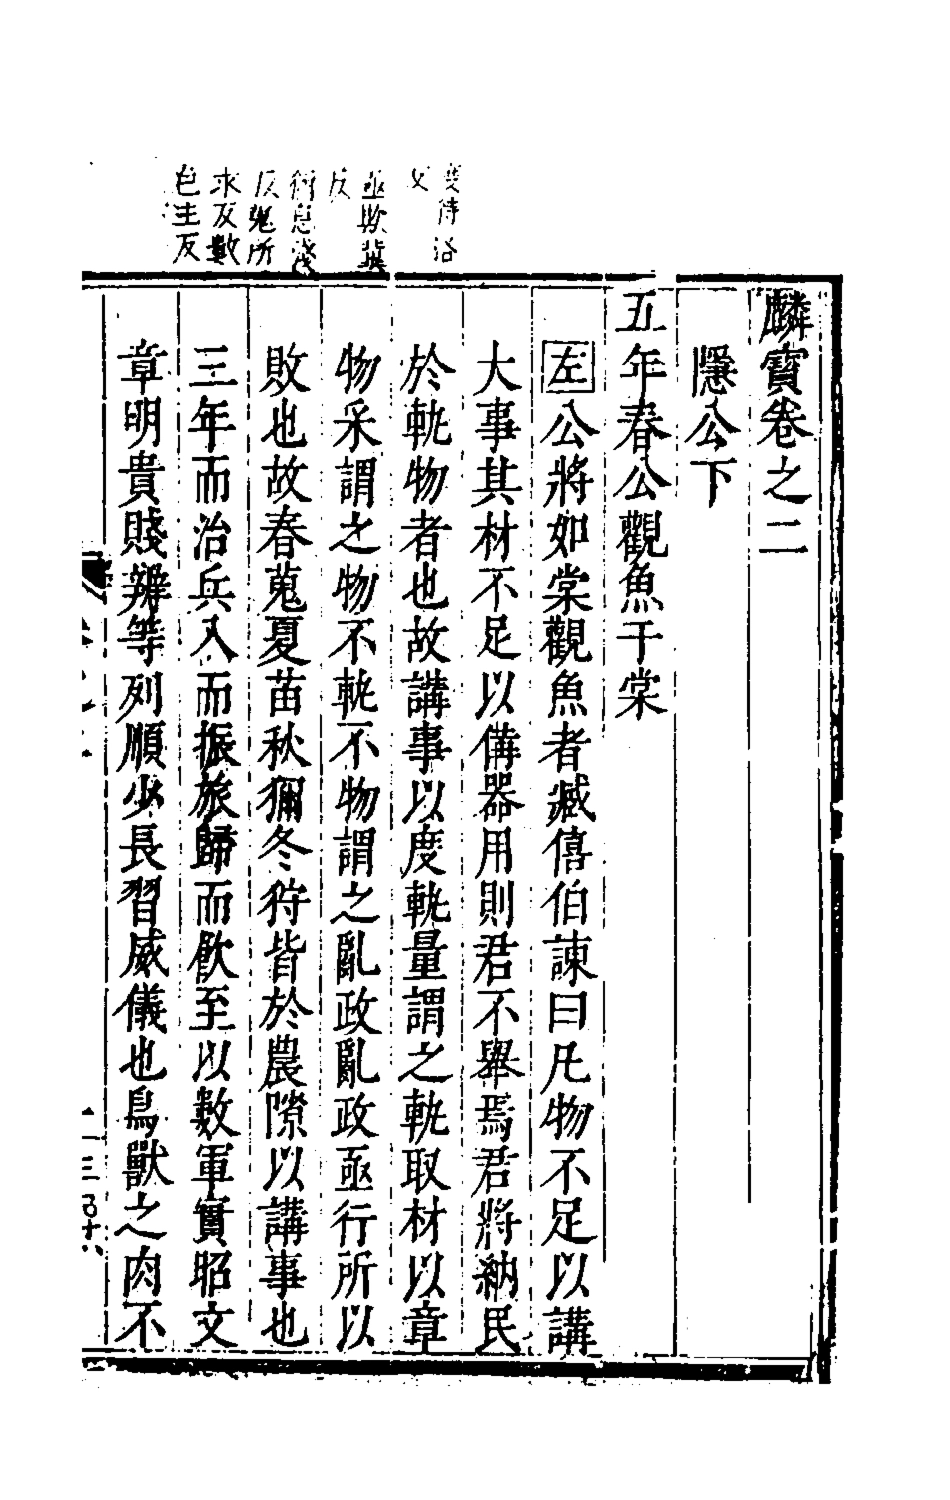 度待洛
亟欺冀
反
獮息淺
反蒐所
求反數
色主反
麟寶卷之二
隱公下
五年春公觀魚于棠
左公將如棠觀魚者臧僖伯諫曰凡物不足以講
大事其材不足以備器用則君不舉焉君將納民
於軌物者也故講事以度軌量謂之軌取材以章
物采謂之物不軌不物謂之亂政亂政亟行所以
敗也故春蒐夏苗秋獮冬狩皆於農隙以講事也
三年而治兵入而振旅歸而飲至以數軍實昭文
章明貴賤辨等列順少長習威儀也鳥獸之肉不